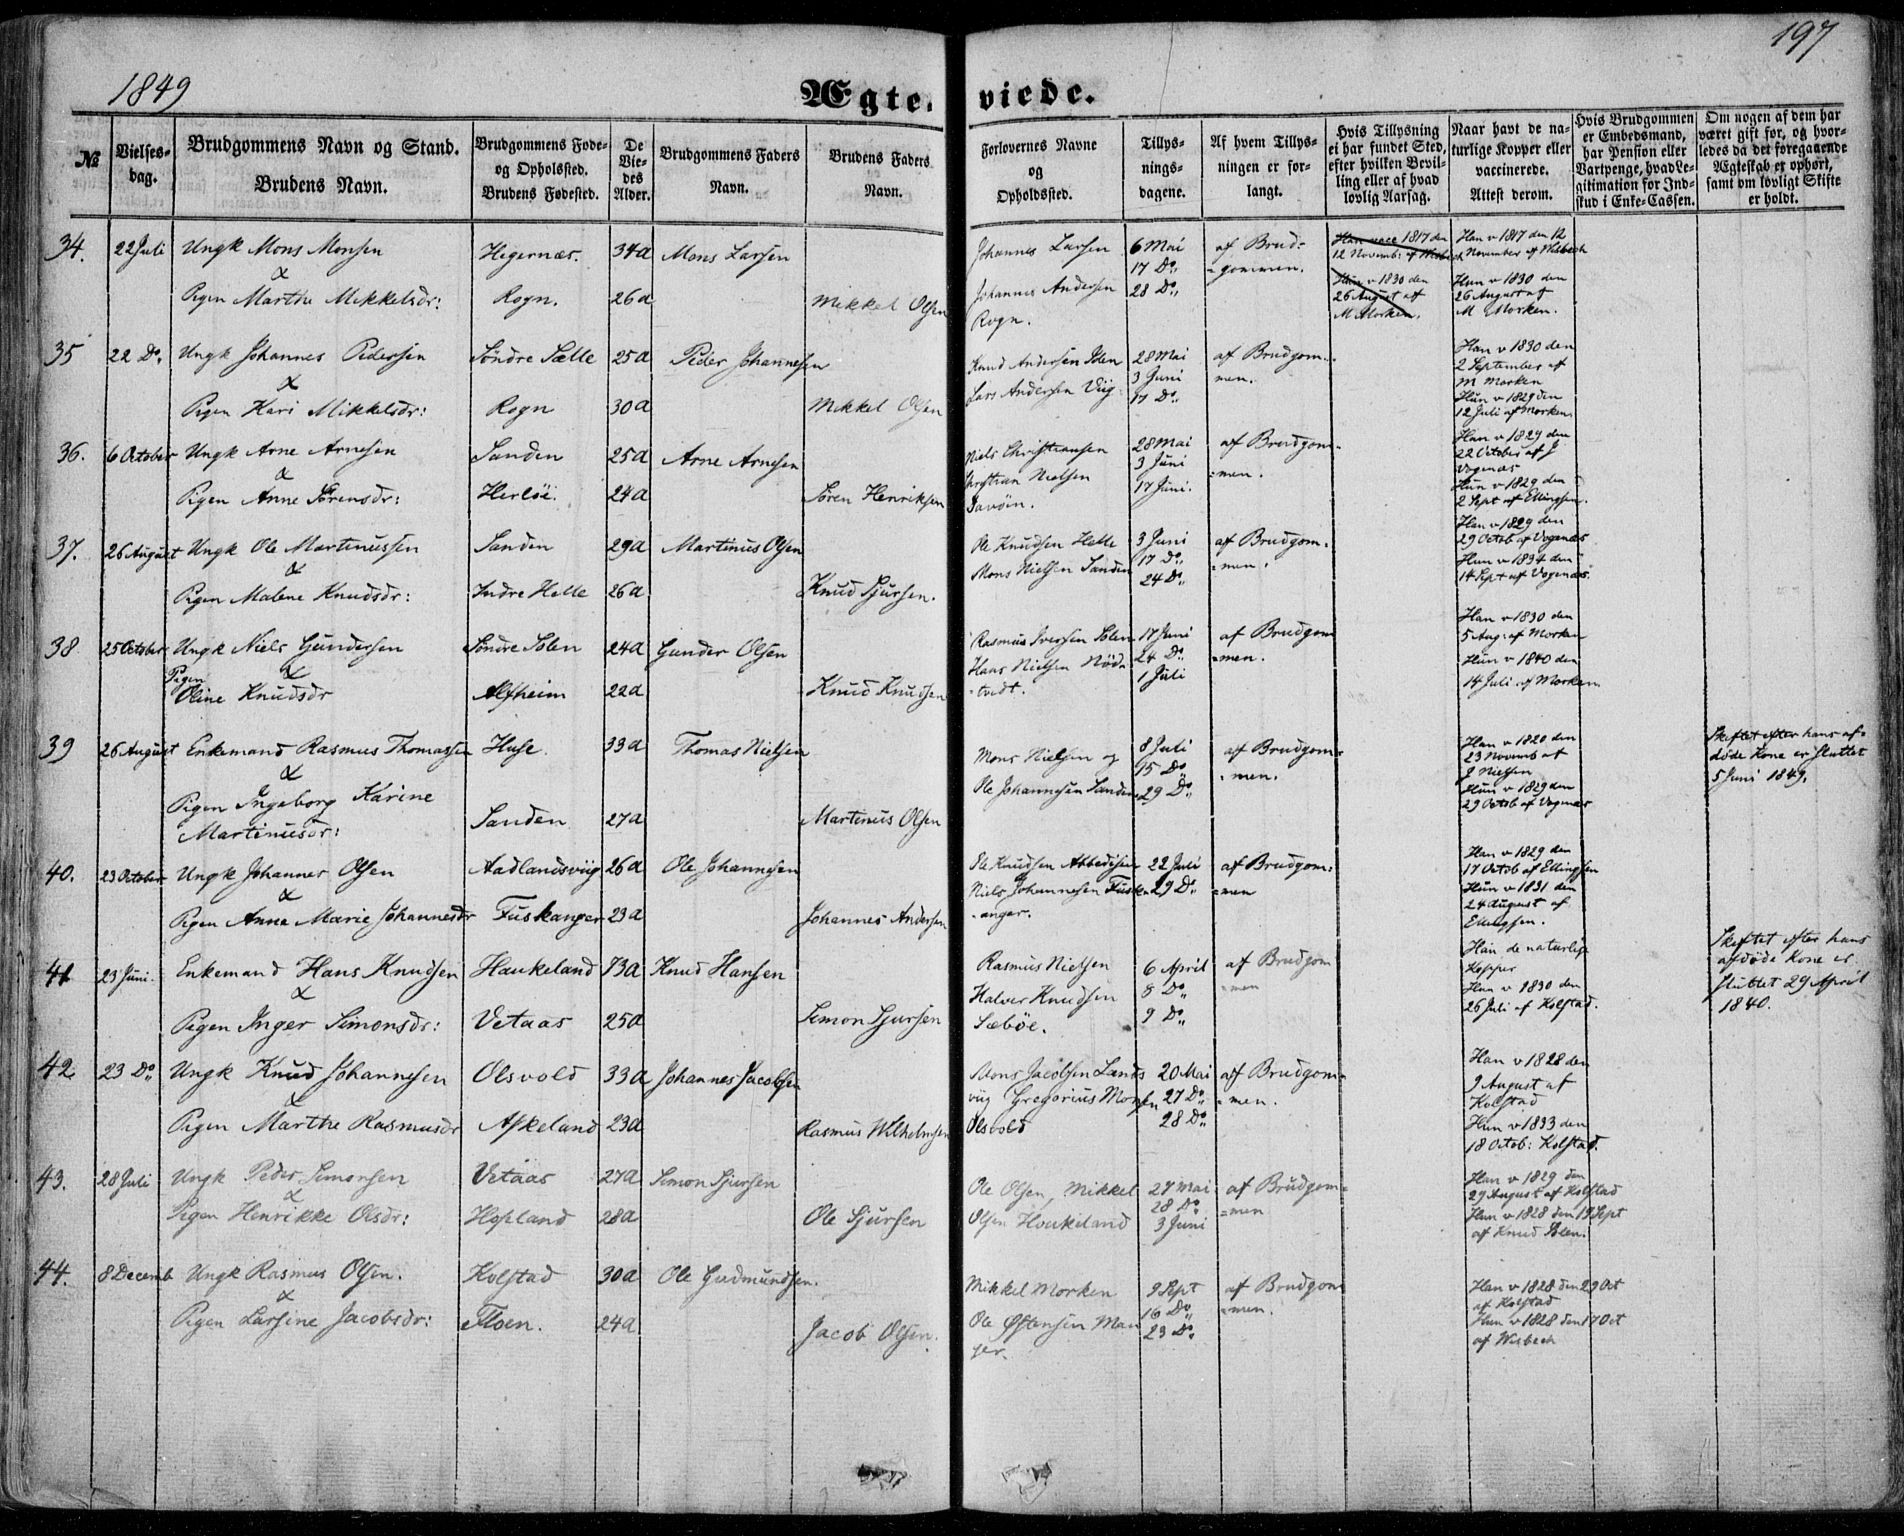 197
1849
Ægte-viede.
№
Vielses-dag.
Brudgommens Navn og Stand.
Brudens Navn.
Brudgommens Føde- og Opholssted.
Brudens Fødested.
De Vie-des Alder.
Brudgommens Faders Navn.
Brudens Faders Navn.
Forlovernes Navne og Opholdssted.
Tillys-nings-dagene.
Af hvem Tillys-ningen er for-langt.
Hvis Tillysning ei har fundet Sted, efter hvilken Bevil-ling eller af hvad lovlig Aarsag.
Naar havt de na-turlige Kopper eller vaccinerede. Attest derom.
Hvis Brudgommen er Embedsmand, har Pension eller Vartpenge, hvad Le-gitimation for Ind-skud i Enke-Cassen.
Om nogen af dem har været gift før, og hvor-ledes da det foregaaende Ægteskab er ophørt, samt om lovligt Skifte er holdt.
34. 22 Juli Ungk Mons Monsen Hegernæs. 34a Mons Larsen
&
Pigen Marthe Mikkelsdr: Rogn. 26a Mikkel Olsen
Johannes Larsen 6 Mai af Brud-
17 Do =gommen.
Johannes Andersen 28 Do
Rogn.
Han vacc 1817 den
12 Novemb: af Wisbech
Hun v 1830 den
26 August af
M Morken.
Han v 1817 den 12
November af Wisbech
Hun v 1830 den
26 August af
M Morken.
35 22 Do. Ungk Johannes Pedersen Søndre Sætte 25a Peder Johannesen
&
Pigen Kari Mikkelsdr: Rogn 30a Mikkel Olsen
Knud Andersen Iden 28 Mai af Brudgom-
3 Juni men.
Lars Andersen Viig 17 Do
Han v 1830 den
2 September af
M Morken
Hun v 1829 den
12 Juli af Morken.
36. 6 October Ungk Arne Arnesen Sanden 25a Arne Arnesen
&
Pigen Anne Sørensdr: Herløe. 24a Søren Henriksen
Niels Christiansen 28 Mai af Brudgom=
3 Juni =men.
Christian Nielsen 17 Juni.
Han v 1829 den
22 October af J
Vogenæs
Hun v 1829 den
2 Sept af Ellingsen.
37. 26 August Ungk Ole Martinussen Sanden 29a Martinus Olsen
&
Pigen Malene Knudsdr: Indre Helle 26a Knud Sjursen.
Ole Knudsen Helle 3 Juni af Brudgom=
17 Do =men.
Mons Nielsen Sanden 24 Do
Han v 1829 den
29 Octob af Vogenæs
Hun v 1834 den
14 Sept af Vogenæs.
38 25 October Ungk Niels Gundersen Søndre Solen 24a Gunder Olsen
Pigen &
Oline Knudsdr Alfheim 22a Knud Knudsen
Rasmus Iversen Solen 17 Juni af Brudgom
Hans Nielsen Nød= 24 Do =men.
-tvedt. 1 Juli
Han v 1830 den
5 Aug: af Morken
Hun v 1840 den
14 Juli af Morken
39 26 August Enkemand Rasmus Thomassen Huse. 33a Thomas Nielsen
&
Pigen Ingeborg Karine
Martinusdr: Sanden 27a Martinus Olsen
Mons Nielsen og 8 Juli af Brudgom=
15 Do =men.
Ole Johannesen Sanden 29 Do
Han v 1820 den
23 Novemb af
J Nielsen
Hun v 1829 den
29 Octob af Vogenæs
Skiftet efter hans af=
døde Kone er sluttet
5 Juni 1849.
40. 23 October Ungk Johannes Olsen Aadlandsviig 26a Ole Johannesen
&
Pigen Anne Marie Johannesdr Fuskanger 23a Johannes Andersen
Ole Knudsen 22 Juli af Brudgom=
Niels Johannesen Fusk= 29 Do =men
-anger.
Han v 1829 den
17 Octob af Ellingsen
Hun v 1831 den
24 August af
Ellingsen.
41 23 Juni. Enkemand Hans Knudsen Haukeland 73a Knud Hansen
&
Pigen Inger Simonsdr: Vetaas 25a Simon Sjursen
Rasmus Nielsen 6 April af Brudgom
Halver Knudsen 8 Do =men
Sæbøe. 9 Do
Han de naturlige
Kopper
Hun v 1830 den
26 Juli af Kolstad.
Skiftet efter hans
afdøde Kone er
sluttet 29 April
1840.
42 23 Do Ungk Knud Johannesen Olsvold 33a Johannes Jacobsen
&
Pigen Marthe Rasmusdr Askeland 23a Rasmus Wilhelmsen
Mons Jacobsen Lands 20 Mai af Brudgom=
viig Gregorius Monsen 27 Do =men.
Olsvold 28 Do
Han v 1828 den
9 August af
Kolstad
Hun v 1833 den
18 Octob: Kolstad.
43. 28 Juli Ungk Peder Simonsen Vetaas 27a Simon Sjursen
&
Pigen Henrikke Olsdr: Hopland 28a Ole Sjursen
Ole Olsen, Mikkel 27 Mai af Brudgom=
28 Do =men
Olsen Houkeland 3 Juni
Han v 1829 den
29 August af Kolstad
Hun v 1828 den 19 Sept
af Knud Solen.
44. 8 Decemb Ungk Rasmus Olsen. Kolstad 30a Ole Gudmundsen.
&
Pigen Larsine Jacobsdr: Floen. 24a Jacob Olsen.
Mikkel Morken 9 Sept af Brudgom
16 Do =men.
Ole Østensen Man 23 Do
ger.
Han v 1828 den 29 Oct
af Kolstad
Hun v 1828 den 17 Oct
af Wisbech